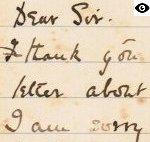 Dear Sir.
I thank you
letter about
I am sorry